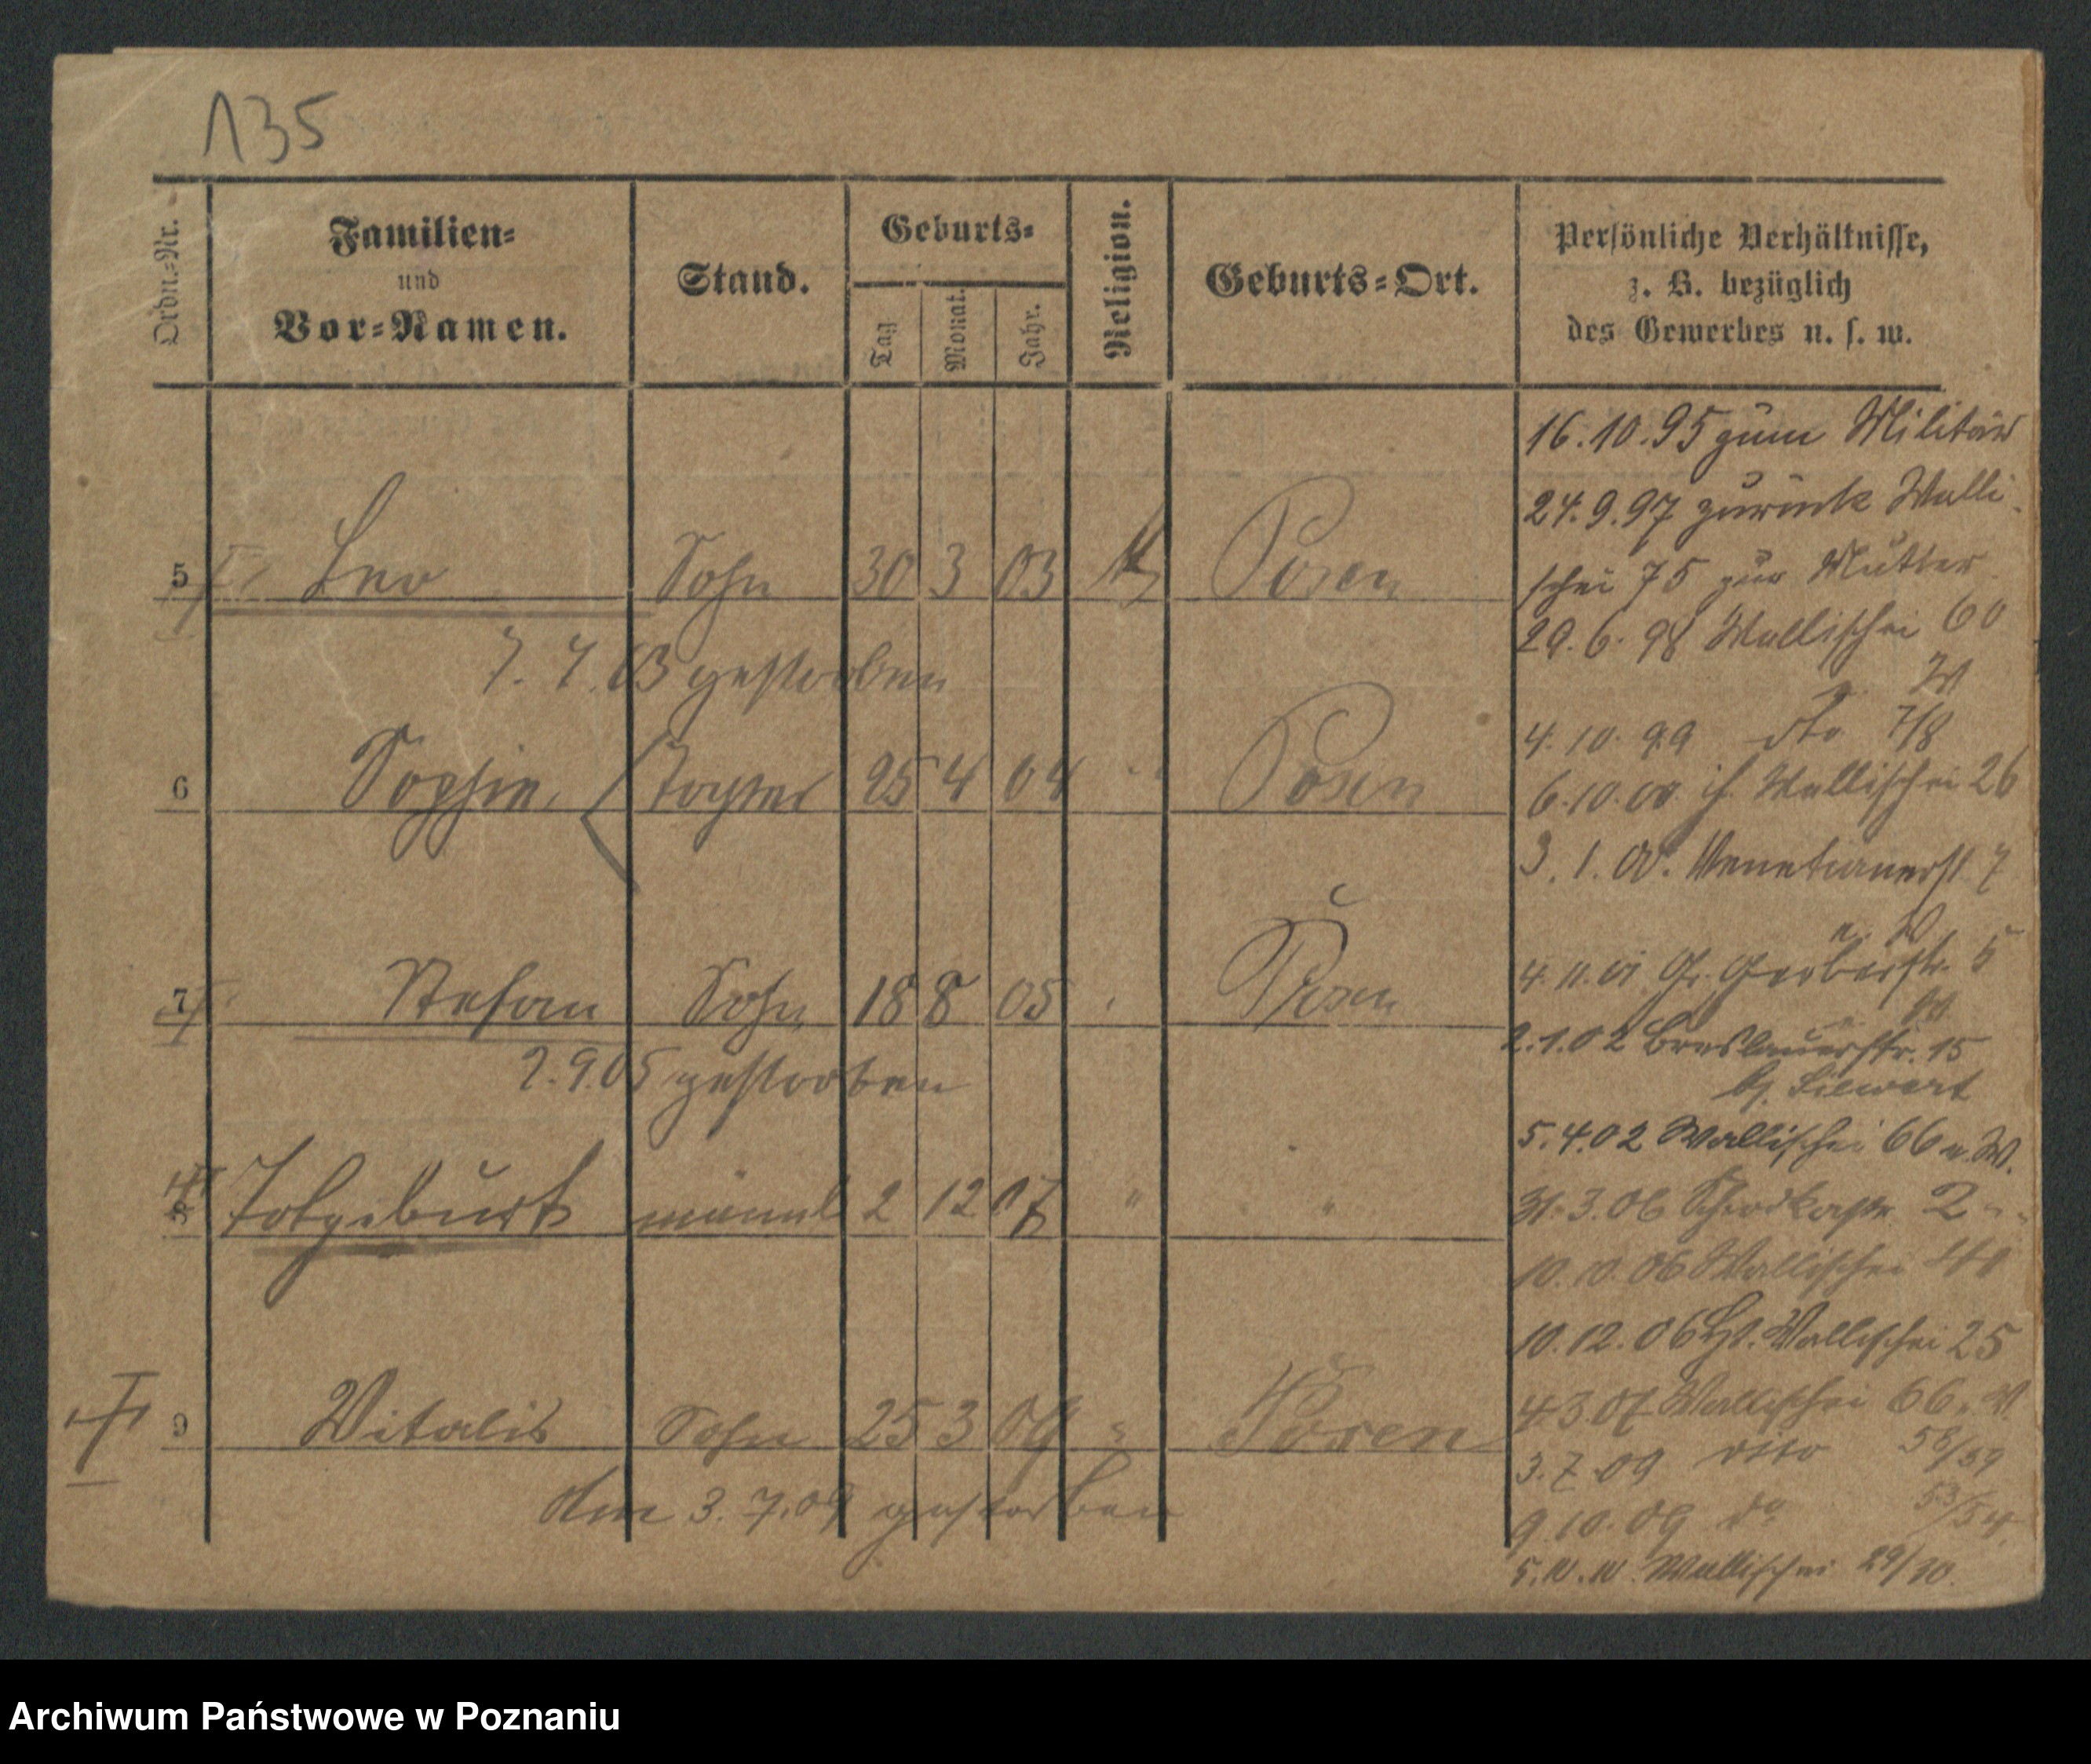 135
Ordn.=Nr.
Familien=
und
Vor=Namen.
Stand.
Geburts=
Tag
Monat.
Jahr.
Religion.
Geburts=Ort.
Persönliche Verhältnisse,
z. B. bezüglich
des Gewerbes u. s. w.
5 Leo Sohn 30 3 03 Posen
7. 7. 03 gestorben
6 Sophie Tochter 25 4 04 Posen
7 Stefan Sohn 18 8 05 Posen
2.9.05 gestorben
8 Totgeburt männl 2 12 07 " "
9 Vitalis Sohn 25 3 09 " Posen
Am 3. 7. 09 gestorben
16.10.95 zum Militär
24.9.97 zurück Walli-
schei 75 zur Mutter
29.6.98 Wallischei 60
W
4.10.99 dto 7/8
6.10.00 Wallischei 26
3.1.00. Venetianerst 7
n. W
4.11.01 Gr. Gerberstr. 5
2.1.02 Breslauerstr. 15
5.4.02 Wallischei 66 n. W.
31.3.06 Schrodkastr. 2
10.10.06 Wallischei
10.12.06 Wallischei 25
4.3.07 Wallischei 66 n. W.
3.7.09 dito 58/59
9.10.09 do 53/54.
Wallischei 29/30.
Archiwum Państwowe w Poznaniu